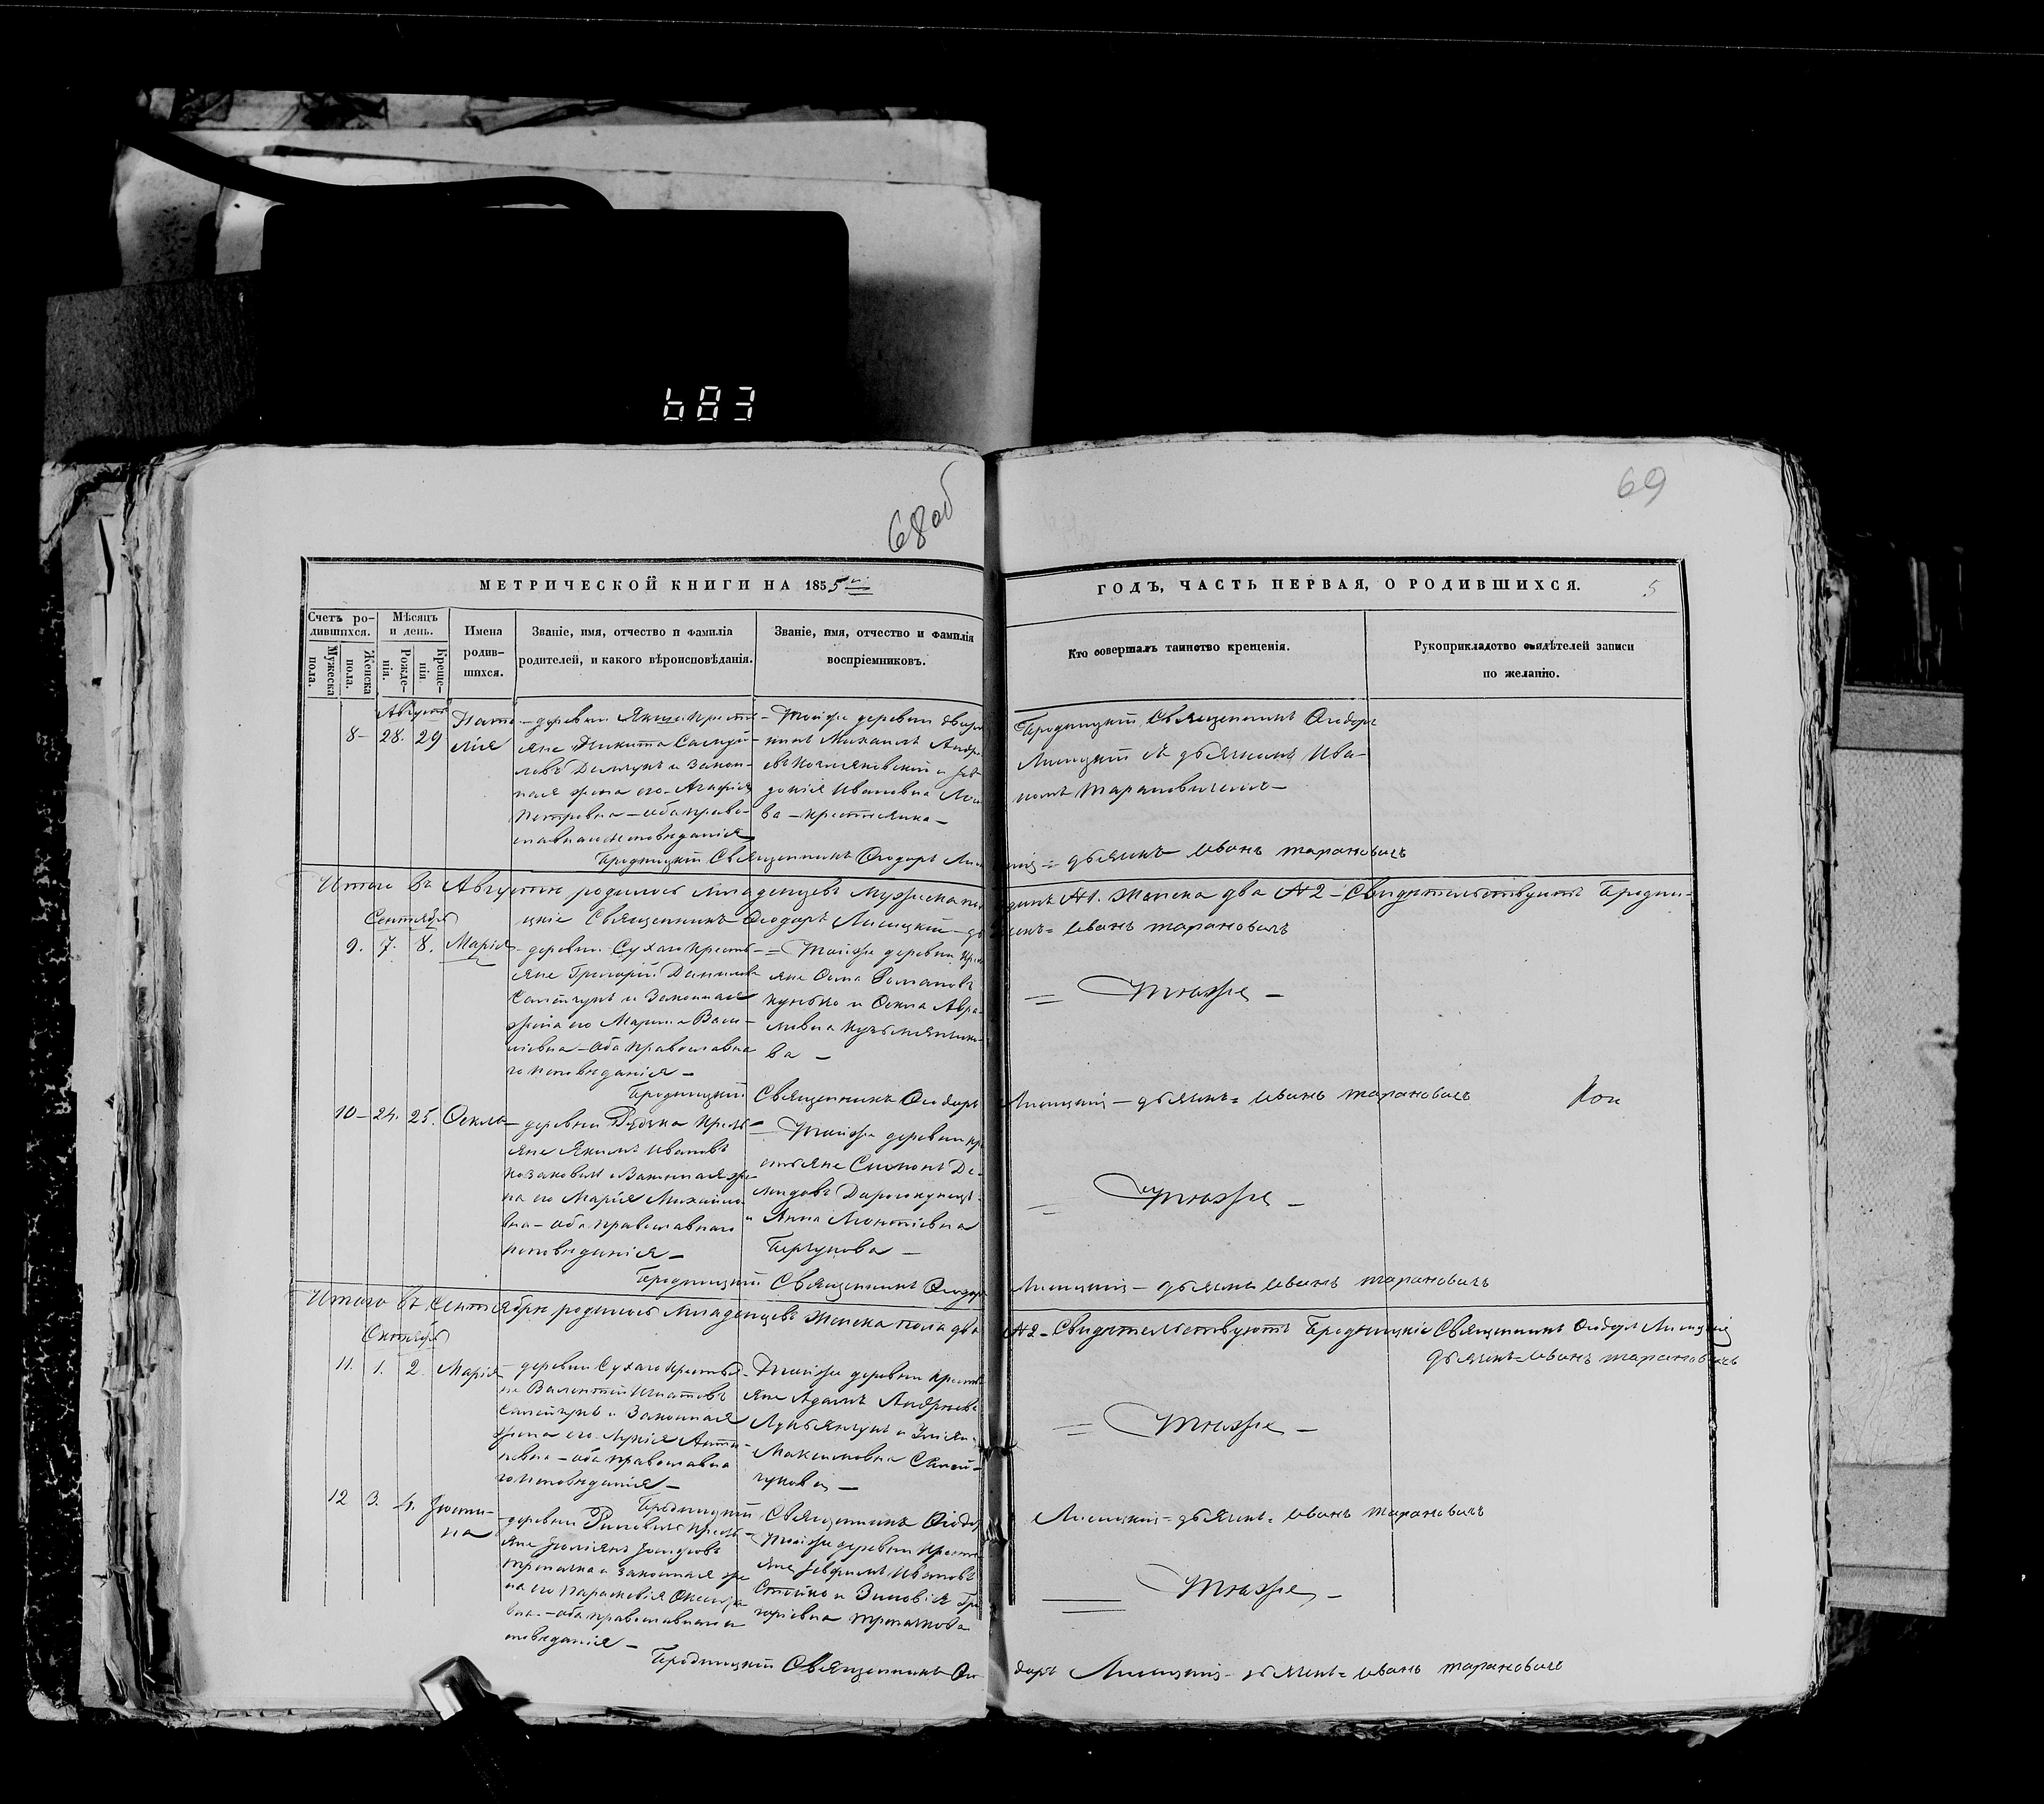 683
68 об
69
МЕТРИЧЕСКОЙ КНИГИ НА 1855
ГОДЪ, ЧАСТЬ ПЕРВАЯ, О РОДИВШИХСЯ.
5
Счетъ ро-
дившихся.
Мужеска пола.
Женска пола.
Мѣсяцъ
и день.
Рожде-
нія.
Креще-
нія.
Имена
родив-
шихся.
Званіе, имя, отчество и фамилія
родителей, и какого вѣроисповѣданія.
Званіе, имя, отчество и фамилія
воспріемниковъ.
Кто совершалъ таинство крещенія.
Рукоприкладство свидѣтелей записи
по желанію.
Августъ
8 – 28. 29
Ната
лія
– деревни крестья
яне Никита
и закон-
ная жена его Агафія
Петровна – оба право-
славнаго исповѣданія
– Тойже деревни
Михаилъ Андре
евъ и Ев
докія Ивановна
ва – крестьянка –
Бродницкій Священникъ Ѳеодоръ
Лисицкій съ дьячкомъ Ива-
номъ Тарановичемъ –
Бродницкій Священникъ Ѳеодоръ Лисицкій = дьячекъ Иванъ Тарановичъ
Итого въ Августѣ родилось младенцевъ мужеска пола одинъ №1. женска два №2 – Свидѣтельствуютъ Бродни-
цкіе Священникъ Ѳеодоръ Лисицкій – дьячекъ = Иванъ Тарановичъ
Сентябрь
9. 7. 8. Марія
– деревни Сухаго кресть-
яне Григорій Даниловъ
и законная
жена его Марина Васи-
ліевна – оба православна
го исповѣданія –
= Тойже деревни кре
яне Романовъ
и Ѳекла Авра
ва –
= Тотже –
Бродницкій Священникъ Ѳеодоръ Лисицкій – дьячекъ = Иванъ Тарановичъ
10 – 24. 25. Ѳекла
– деревни кресть
яне Якимъ Ивановъ
и законная же
на его Марія Михайло
вна – оба православнаго
исповѣданія –
– Тойже деревни кре
стьяне Симонъ Де-
мидовъ
и Анна Леонтіевна
–
= Тотже –
Бродницкій Священникъ Ѳеодоръ Лисицкій – дьячекъ Иванъ Тарановичъ
Итого въ Сентябрѣ родилось младенцевъ женска пола два №2 – Свидѣтельствуютъ Бродницкіе Священникъ Ѳеодоръ Лисицкій
дьячекъ = Иванъ Тарановичъ
Октябрь
11. 1. 2. Марія
– деревни Сухаго крестья
не Валентій Игнатовъ
и законная
жена его Лукія Анти
повна – оба православна
го исповѣданія –
– Тойже деревни кресть
яне Адамъ Андреевъ
Лукьянчукъ и
Максимовна
–
= Тотже –
Бродницкій Священникъ Ѳеодоръ Лисицкій = дьячекъ = Иванъ Тарановичъ
12 3. 4. Іусти-
на
– деревни кресть
яне
и законная же
на его Параскевія
вна – оба православнаго и
сповѣданія –
– Тойже деревни кресть
яне Евфимъ Ивановъ
и Зиновія Гри
горіевна
= Тотже –
Бродницкій Священникъ Ѳеодоръ Лисицкій – дьячекъ = Иванъ Тарановичъ